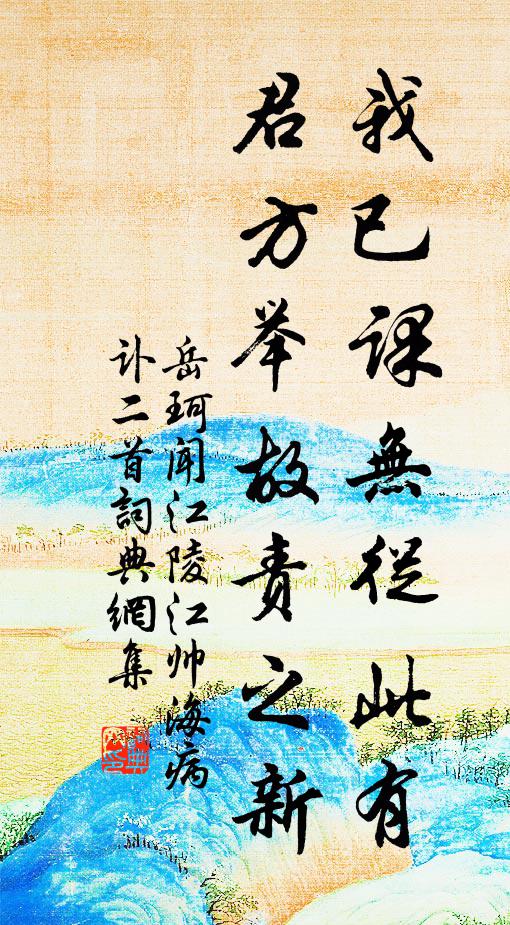 我已課無從此有
君方举故责之新
岳珂闻江陵江帅海病
讣二首詞典網集